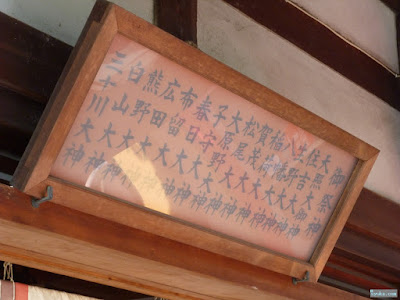 御祭神
天照大御神
住吉大神
八幡大神
賀茂大神
松尾大神
大原野大神
子守大神
春日大神
布留大神
広田大神
熊野大神
白山大神
三十川大神